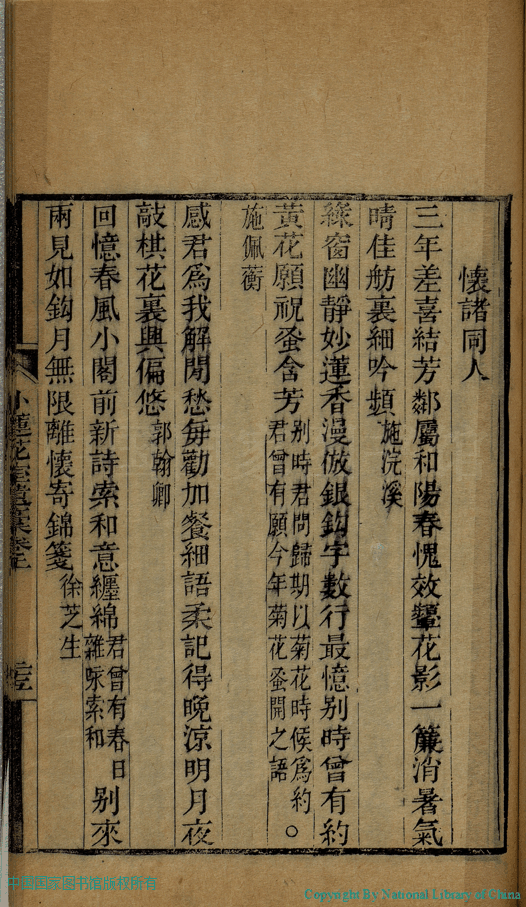 懷諸同人
三年差喜結芳鄰屬和陽春愧效顰花影一簾消暑氣
晴佳舫裏細吟頻施浣溪
綠窗幽靜妙蓮香漫倣銀鈎字數行最憶别時曾有約
黃花願祝蚤含芳别時君問歸期以菊花時候爲約○君曾有願今年菊花蚤開之語
施佩蘅
感君爲我解閒愁毎勸加餐細語柔記得晚涼明月夜
敲棋花裏興偏悠郭翰卿
回憶春風小閣前新詩索和意纒綿君曾有春日雜咏索和别來
兩見如鈎月無限離懷寄錦箋徐芝生
小蓮花室遺稾卷上
中国国家图书馆版权所有
Copyright By National Library of China